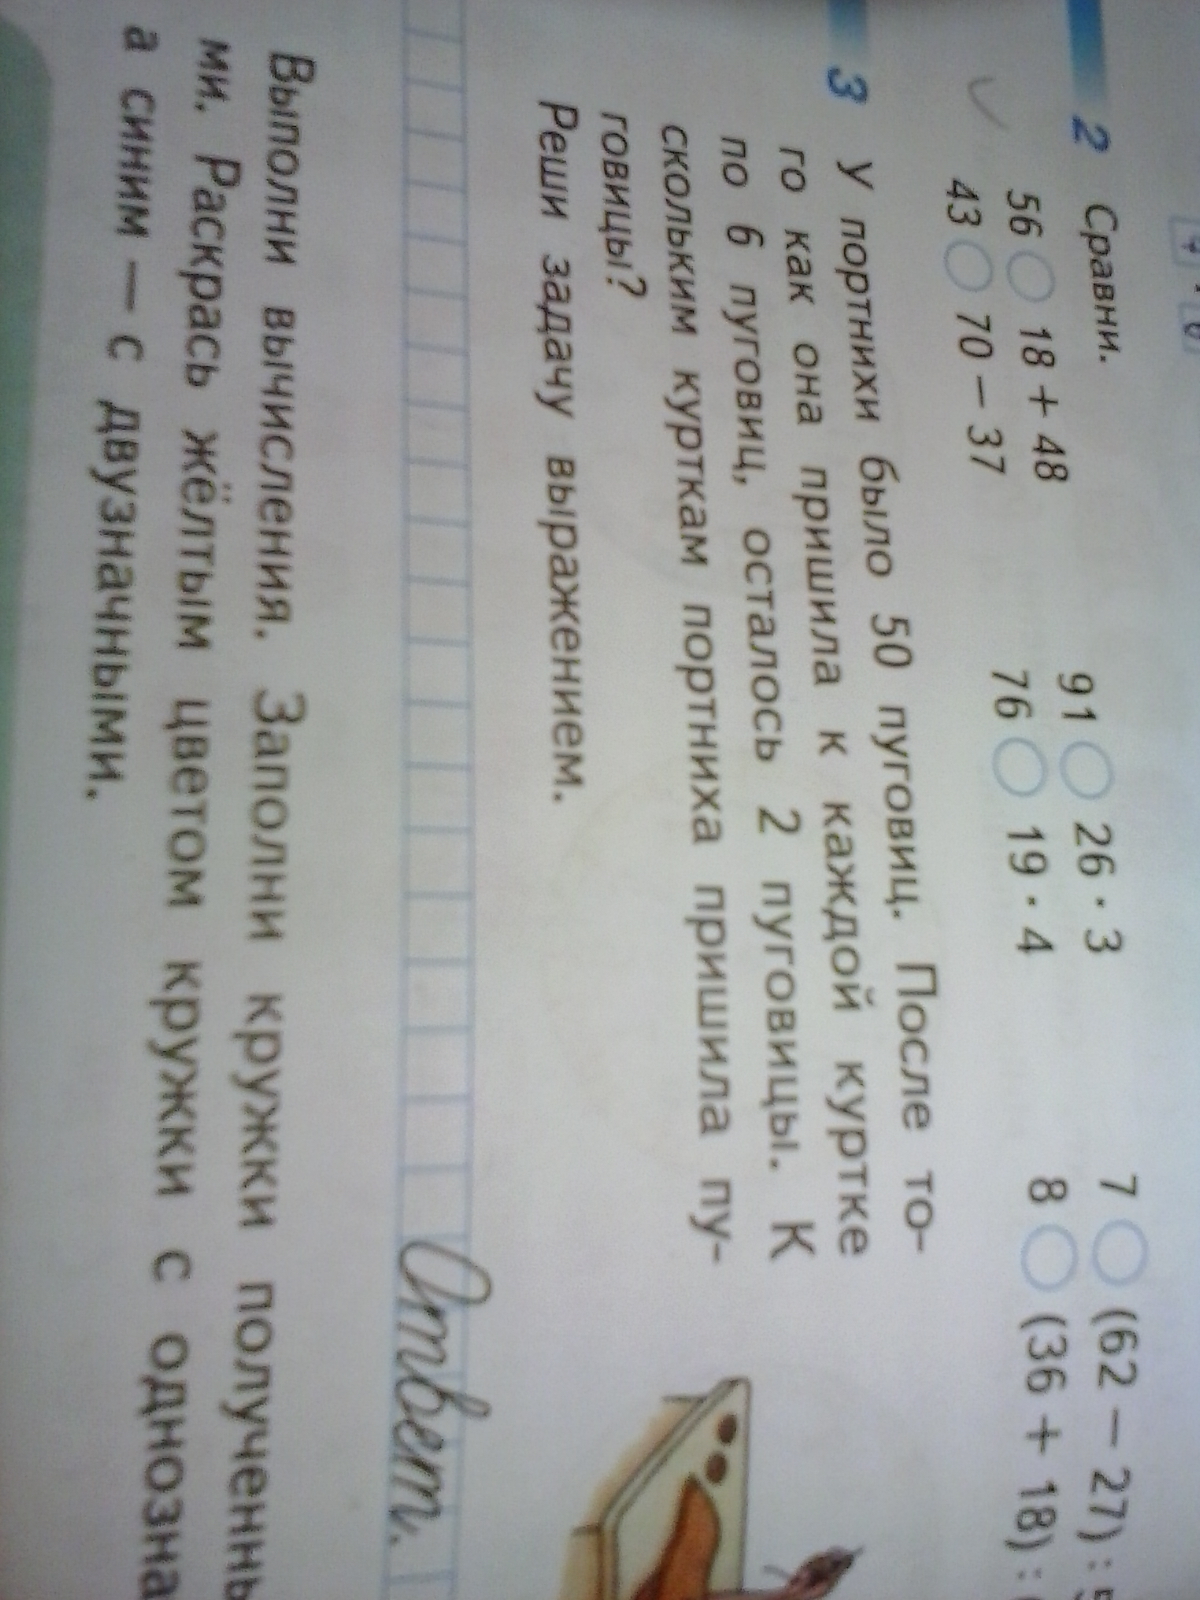 2 Сравни.
56 ○ 18 + 48 91 ○ 26 · 3 7 ○ (62 − 27) :
43 ○ 70 − 37 76 ○ 19 · 4 8 ○ (36 + 18) :
3 У портнихи было 50 пуговиц. После то-
го как она пришила к каждой куртке
по 6 пуговиц, осталось 2 пуговицы. К
скольким курткам портниха пришила пу-
говицы?
Реши задачу выражением.
Ответ.
Выполни вычисления. Заполни кружки полученны
ми. Раскрась жёлтым цветом кружки с однозна
а синим — с двузначными.